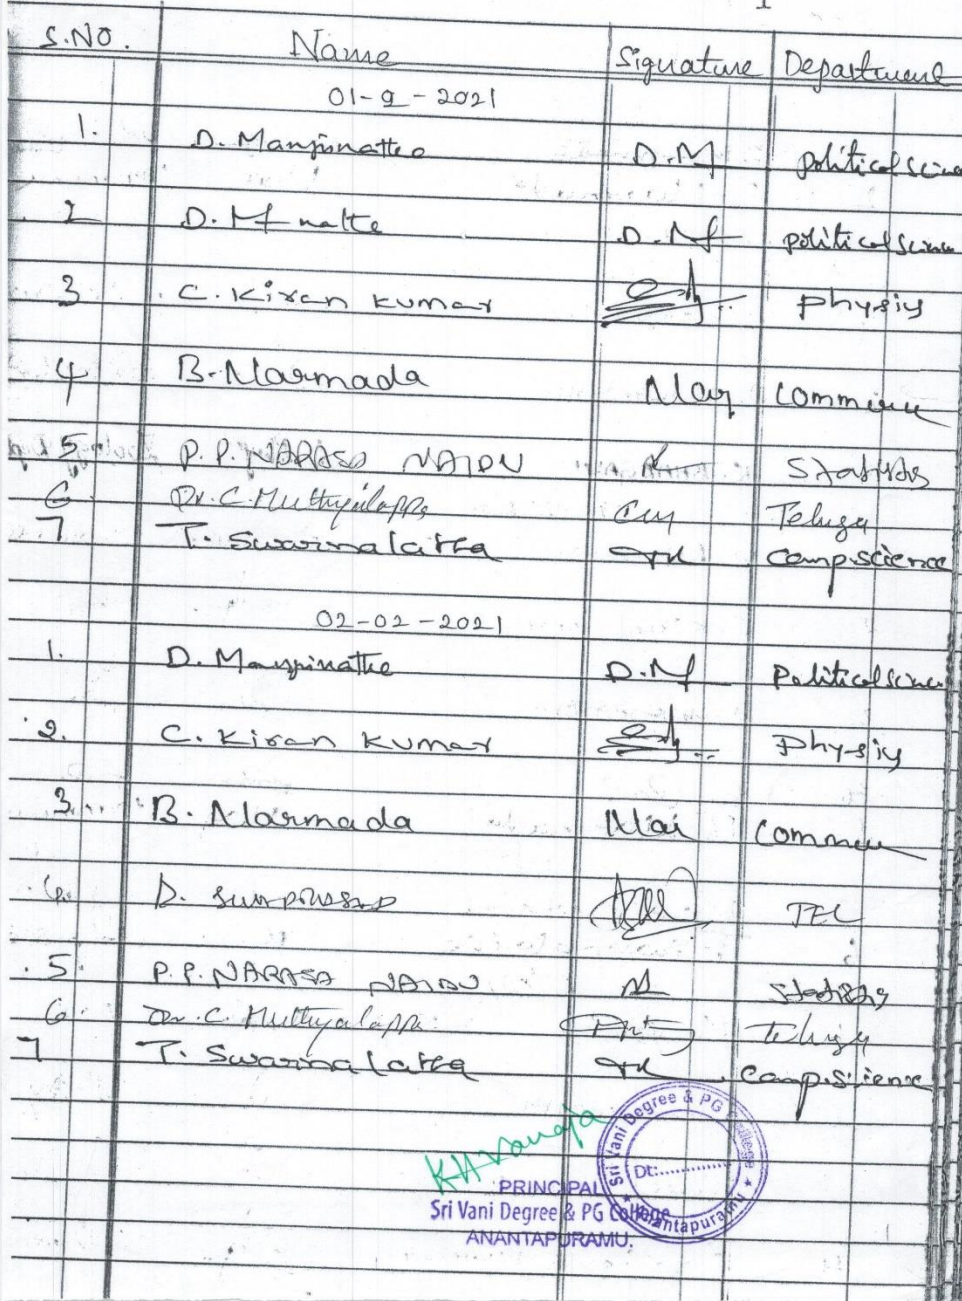 1
S.NO. Name Signature Department
01-9-2021
1. D. Manjunatha D.M political scien
2 D. M natte D.M political scien
3 C. Kiran Kumar physics
4 B. Narmada Nar commerce
5 P.P. NARASA NAIDU Statistics
6 Dr. C. Muthyalappa Cm Telugu
7 T. Swarnalatha comp.science
02-02-2021
1. D. Manjunatha D.M Political scienc
2. C. Kiran Kumar Physics
3. B. Narmada Nar Comme
4. D. TEL
5. P.P. NARASA NAIDU Statistics
6. Dr. C. Muthyalappa Telugu
7 T. Swarnalatha comp.science
K H Vanaja
PRINCIPAL
Sri Vani Degree & PG College
ANANTAPURAMU.
Sri Vani Degree & PG College
Dt:..............
★ Anantapuramu ★